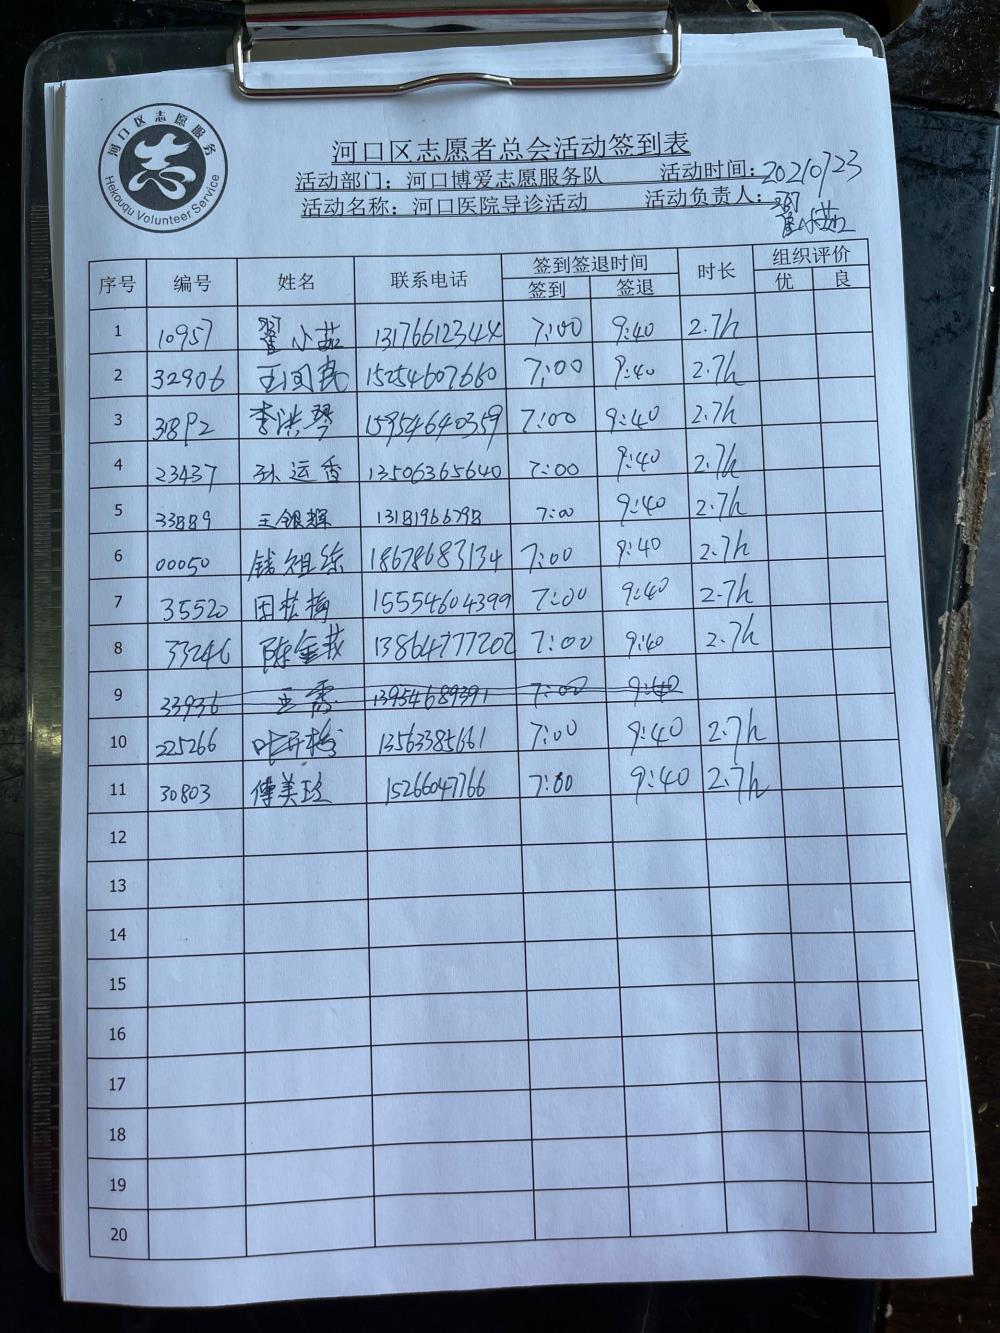 河口区志愿服务
Hekouqu Volunteer Service
河口区志愿者总会活动签到表
活动部门：河口博爱志愿服务队 活动时间：
活动名称：河口医院导诊活动 活动负责人：翟小茹
序号 编号 姓名 联系电话 签到签退时间 时长 组织评价
签到 签退 优 良
1 10957 翟小茹 13176612344 7:00 9:40 2.7h
2 32906 15254607660 7:00 9:40 2.7h
3 李洪琴 15954640359 7:00 9:40 2.7h
4 23437 孙运香 13506365640 7:00 9:40 2.7h
5 33889 王银辉 13181966798 7:00 9:40 2.7h
6 00050 钱祖练 18678683134 7:00 9:40 2.7h
7 35520 15554604399 7:00 9:40 2.7h
8 33246 13864777202 7:00 9:40 2.7h
9 33936 13954689391 7:00 9:40
10 225266 13563385661 7:00 9:40 2.7h
11 30803 傅美玲 15266047766 7:00 9:40 2.7h
12
13
14
15
16
17
18
19
20